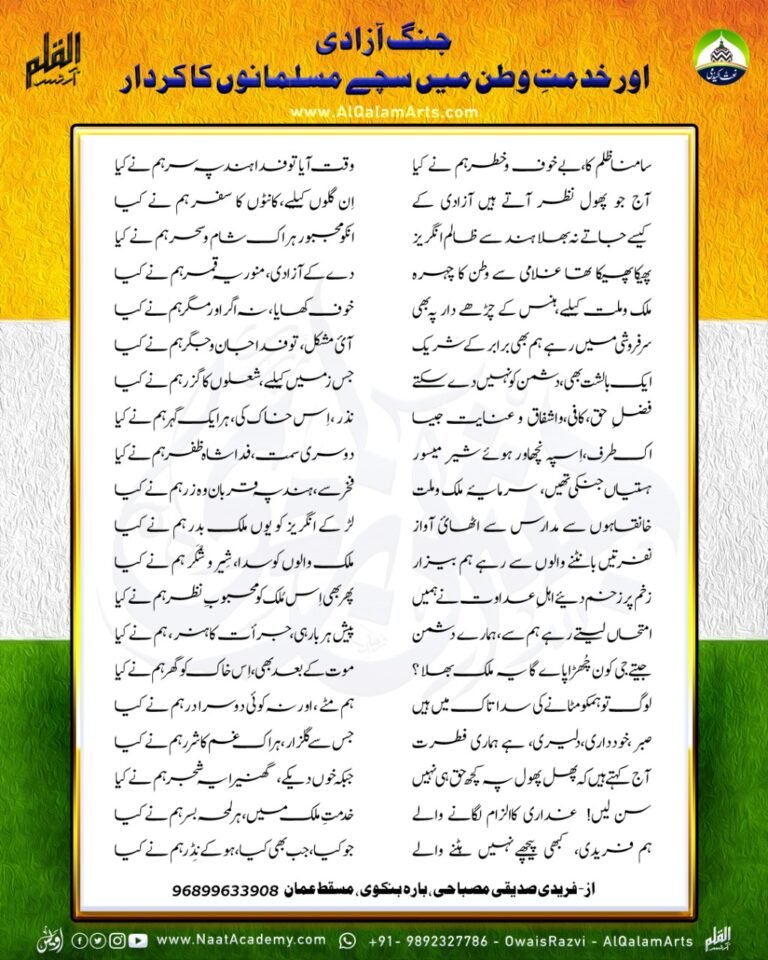 القلم آرٹس
جنگ آزادی
اور خدمتِ وطن میں سچے مسلمانوں کا کردار
www.AlQalamArts.com
سامنا ظلم کا، بے خوف و خطر ہم نے کیا وقت آیا تو فدا ہند پہ سر ہم نے کیا
آج جو پھول نظر آتے ہیں آزادی کے اِن گلوں کیلیے، کانٹوں کا سفر ہم نے کیا
کیسے جاتے نہ بھلا ہند سے ظالم انگریز انکو مجبور ہر اک شام و سحر ہم نے کیا
پھیکا پھیکا تھا غلامی سے وطن کا چہرہ دے کے آزادی، منور یہ قمر ہم نے کیا
ملک و ملت کیلیے، ہنس کے چڑھے دار پہ بھی خوف کھایا، نہ اگر اور مگر ہم نے کیا
سرفروشی میں رہے ہم بھی برابر کے شریک آئ مشکل، تو فدا جان و جگر ہم نے کیا
ایک بالشت بھی، دشمن کو نہیں دے سکتے جس زمیں کیلیے، شعلوں کا گزر ہم نے کیا
فضلِ حق، کافی، و اشفاق و عنایت جیسا نذر، اِس خاک کی، ہر ایک گہر ہم نے کیا
اک طرف، اِس پہ نچھاور ہوئے شیر میسور دوسری سمت، فدا شاہ ظفر ہم نے کیا
ہستیاں جنکی تھیں، سرمایۂ ملک و ملت فخر سے، ہند پہ قربان وہ زر ہم نے کیا
خانقاہوں سے مدارس سے اٹھائ آواز لڑ کے انگریز کو یوں ملک بدر ہم نے کیا
نفرتیں بانٹنے والوں سے رہے ہم بیزار ملک والوں کو سدا، شِیر و شکر ہم نے کیا
زخم پر زخم دیئے اہلِ عداوت نے ہمیں پھر بھی اِس مُلک کو محبوبِ نظر ہم نے کیا
امتحاں لیتے رہے ہم سے، ہمارے دشمن پیش ہر بار ہی، جرأت کا ہنر، ہم نے کیا
جیتے جی کون چُھڑا پاے گا یہ ملک بھلا ؟ موت کے بعد بھی، اِس خاک کو گھر ہم نے کیا
لوگ تو ہمکو مٹانے کی سدا تاک میں ہیں ہم مٹے، اور نہ کوئی دوسرا در ہم نے کیا
صبر، خودداری، دلیری، ہے ہماری فطرت جس سے گلزار، ہر اک غم کا شرر ہم نے کیا
آج کہتے ہیں کہ پھل پھول پہ کچھ حق ہی نہیں جبکہ خوں دیکے، گھنیرا یہ شجر ہم نے کیا
سن لیں! غداری کا الزام لگانے والے خدمتِ ملک میں، ہر لمحہ بسر ہم نے کیا
ہم فریدی، کبھی پیچھے نہیں ہٹنے والے جو کیا، جب بھی کیا، ہو کے نِڈر ہم نے کیا
از- فریدی صدیقی مصباحی، بارہ بنکوی، مسقط عمان 96899633908
www.NaatAcademy.com +91- 9892327786 - OwaisRazvi - AlQalamArts